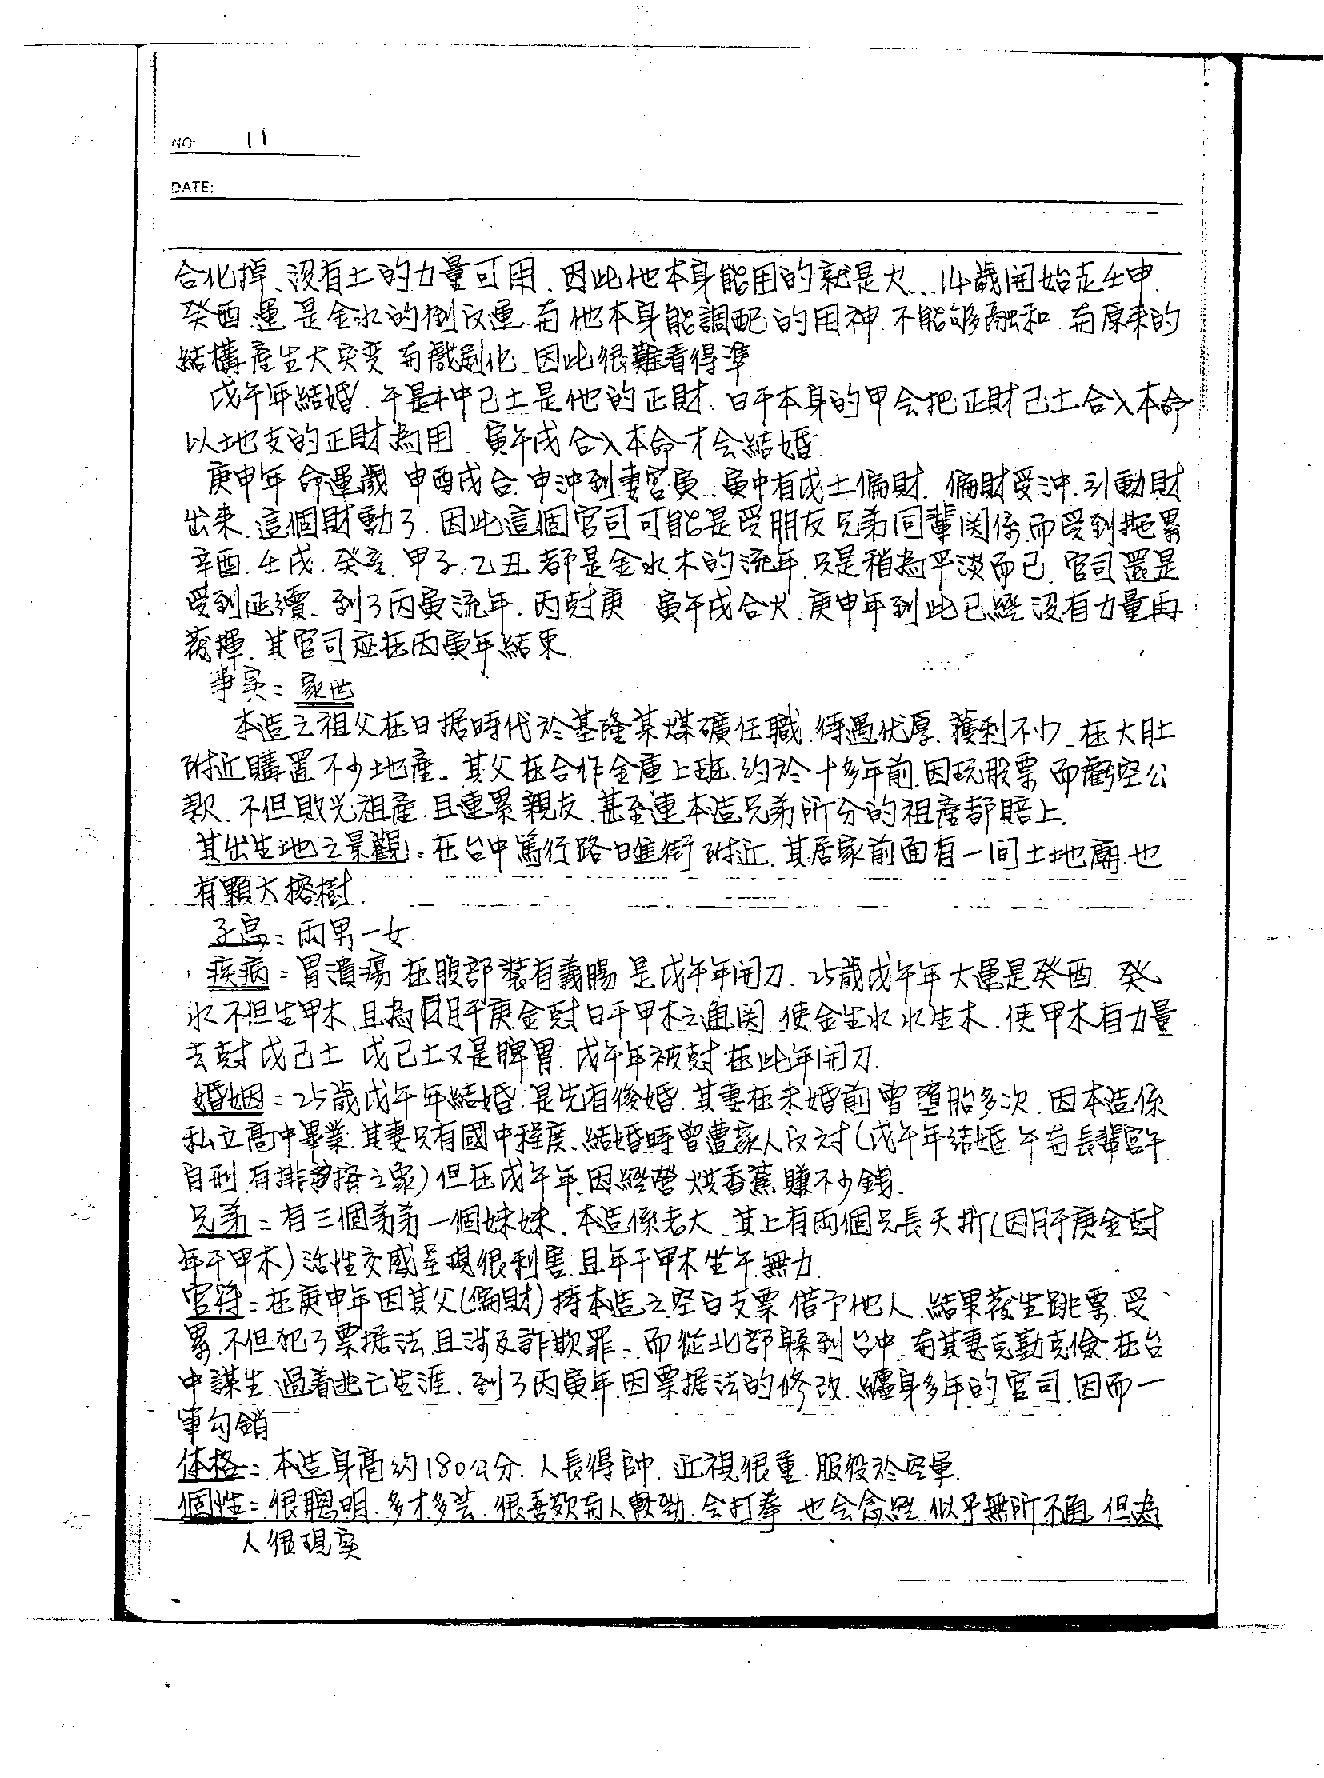 NO: 11
DATE:
合化掉、沒有土的力量可用、因此他本身能用的就是火、14歲開始走壬申.
癸酉.運是金水的倒沖運.有他本身能調配的用神.不能夠融和.有原來的
結構產生大突变有戲劇化.因此很難看得準
戊午年結婚.午是中己土是他的正財.日干本身的甲会把正財己土合入本命
以地支的正財為用.寅午戌合入本命才会結婚
庚申年命運歲申酉戌合.申沖到妻宮寅.寅中有戊土偏財.偏財受沖.引動財
出來.這個財動了.因此這個官司可能是受朋友兄弟同輩関係而受到拖累
辛酉.壬戌.癸亥.甲子.乙丑都是金水木的流年.只是稍為平淡而已.官司還是
受到延續.到了丙寅流年.丙尅庚 寅午戌合火.庚申年到此已經沒有力量再
發揮.其官司应在丙寅年結束
事实:家世
本造之祖父在日据時代於基隆某煤礦任職.待遇优厚.獲利不少.在大肚
附近購置不少地產.其父在合作金庫上班.約於十多年前.因玩股票而虧空公
款.不但敗光祖產.且連累親友.甚至連本造兄弟所分的祖產都賠上.
其出生地之景觀.在台中篤行路 附近.其居家前面有一间土地廟.也
有顆大榕樹.
子息:兩男一女
疾病:胃潰瘍在腹部裝有義腸是戊午年開刀.25歲戊午年大運是癸酉 癸
水不但生甲木.且為月干庚金尅日干甲木之通関使金生水水生木.使甲木有力量
去尅戊己土 戊己土又是脾胃.戊午年被尅在此年開刀.
婚姻:25歲戊午年結婚.是先有後婚.其妻在未婚前曾墮胎多次.因本造係
私立高中畢業.其妻只有國中程度.結婚時曾遭家人反对(戊午年結婚午有長輩宮午
自刑.有排擠之象)但在戊午年.因經營烘香蕉賺不少錢.
兄弟:有三個弟弟一個妹妹.本造係老大.其上有兩個兄長夭折(因月干庚金尅
年干甲木)活性交感呈現很利害.且年干甲木坐午無力.
官符:在庚申年因其父(偏財)持本造之空白支票借予他人.結果發生跳票.受
累.不但犯了票据法且涉及詐欺罪.而從北部躲到台中.有其妻克勤克儉.在台
中謀生.過着逃亡生涯.到了丙寅年.因票据法的修改.纏身多年的官司.因而一
筆勾銷
体格:本造身高約180公分.人長得帥.近視很重.服役於空軍.
個性:很聰明.多才多芸.很喜歡有人 .会打拳 也会念經.似乎無所不通.但為
人很現实